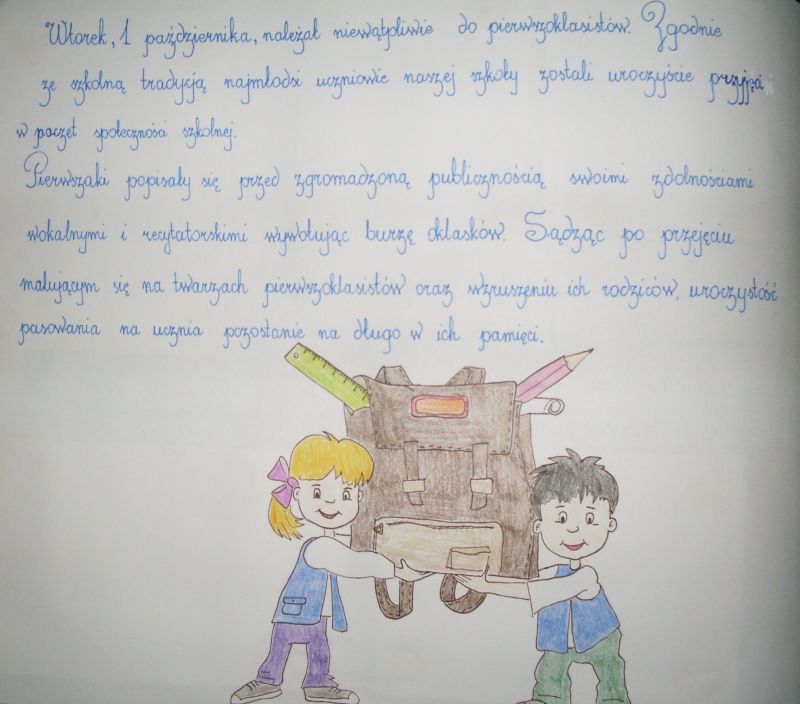 Wtorek, 1 października, należał niewątpliwie do pierwszoklasistów. Zgodnie
ze szkolną tradycją najmłodsi uczniowie naszej szkoły zostali uroczyście przyjęci
w poczet społeczności szkolnej.
Pierwszaki popisały się przed zgromadzoną publicznością swoimi zdolnościami
wokalnymi i recytatorskimi wywołując burzę oklasków. Sądząc po przejęciu
malującym się na twarzach pierwszoklasistów oraz wzruszeniu ich rodziców, uroczystość
pasowania na ucznia pozostanie na długo w ich pamięci.